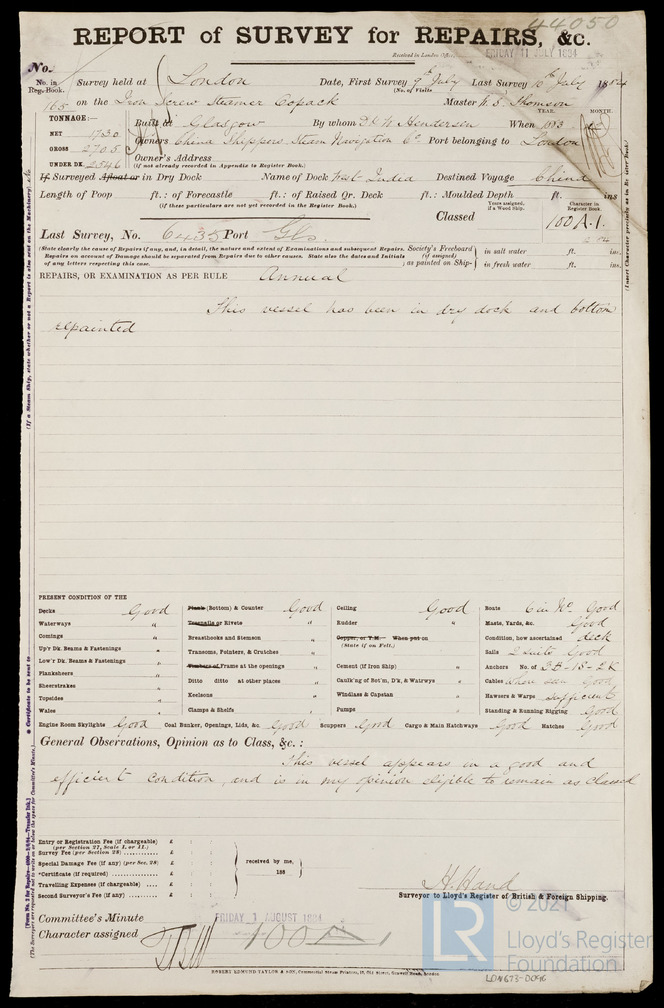 44050
REPORT of SURVEY for REPAIRS, &c.
Received in London Office FRIDAY 11 JULY 1884
No.
No. in Reg. Book. Survey held at London Date, First Survey 9th July Last Survey 10th July 1884
(No. of Visits
165 on the Iron Screw Steamer Copack Master W. S. Thomson
TONNAGE:— YEAR. MONTH.
Built at Glasgow By whom D & W Henderson When 1883
NET 1730
GROSS 2705 Owners China Shippers Steam Navigation Co. Port belonging to London
UNDER DK. 2546 Owner's Address
(If not already recorded in Appendix to Register Book.)
If Surveyed Afloat or in Dry Dock Name of Dock West India Destined Voyage China
Length of Poop ft.: of Forecastle ft.: of Raised Qr. Deck ft.: Moulded Depth ft. ins
(if these particulars are not yet recorded in the Register Book.)
Years assigned, if a Wood Ship. Character in Register Book
Classed 100 A.1.
Last Survey, No. 6435 Port Gls.
(State clearly the cause of Repairs if any, and, in detail, the nature and extent of Examinations and subsequent Repairs.
Repairs on account of Damage should be separated from Repairs due to other causes. State also the dates and Initials
of any letters respecting this case.
Society's Freeboard (if assigned) as painted on Ship- in salt water ft. ins.
in fresh water ft. ins.
REPAIRS, OR EXAMINATION AS PER RULE Annual
This vessel has been in dry dock and bottom
repainted
PRESENT CONDITION OF THE
Decks Good
Waterways "
Comings "
Up'r Dk. Beams & Fastenings "
Low'r Dk. Beams & Fastenings "
Planksheers "
Sheerstrakes "
Topsides "
Wales "
Plank (Bottom) & Counter Good
Treenails or Rivets "
Breasthooks and Stemson "
Transoms, Pointers, & Crutches "
Timbers or Frame at the openings "
Ditto ditto at other places "
Keelsons "
Clamps & Shelfs "
Ceiling Good
Rudder "
Copper, or Y.M. When put on
(State if on Felt.)
Cement (if Iron Ship) "
Caulk'g of Bot'm, D'k, & Watrwys "
Windlass & Capstan "
Pumps "
Boats 6 in No. Good
Masts, Yards, &c. Good
Condition, how ascertained deck
Sails 2 suits Good
Anchors No. of 3B-1S-2K
Cables when seen Good
Hawsers & Warps sufficient
Standing & Running Rigging Good
Engine Room Skylights Good Coal Bunker, Openings, Lids, &c. Good Scuppers Good Cargo & Main Hatchways Good Hatches Good
General Observations, Opinion as to Class, &c. :
This vessel appears in a good and
efficient condition and is in my opinion eligible to remain as Classed
Entry or Registration Fee (if chargeable) £
(per Section 27, Scale I. or II.)
Survey Fee (per Section 28) £
Special Damage Fee (if any) (per Sec. 28) £
*Certificate (if required) £
Travelling Expenses (if chargeable) £
Second Surveyor's Fee (if any) £
received by me,
188
H. Hand
Surveyor to Lloyd's Register of British & Foreign Shipping.
Committee's Minute FRIDAY 1 AUGUST 1884
Character assigned 100 A 1
© 2021
LR
Lloyd's Register
Foundation
ROBERT EDMUND TAYLOR & SON, Commercial Steam Printers, 19, Old Street, Goswell Road, London
LDN673-0096